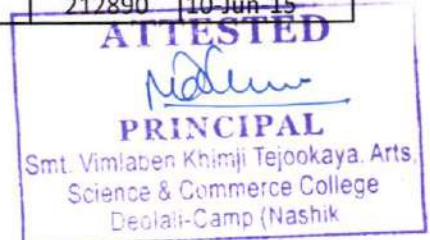 212890 10-Jun-15
ATTESTED
PRINCIPAL
Smt. Vimlaben Khimji Tejookaya. Arts,
Science & Commerce College
Deolali-Camp (Nashik